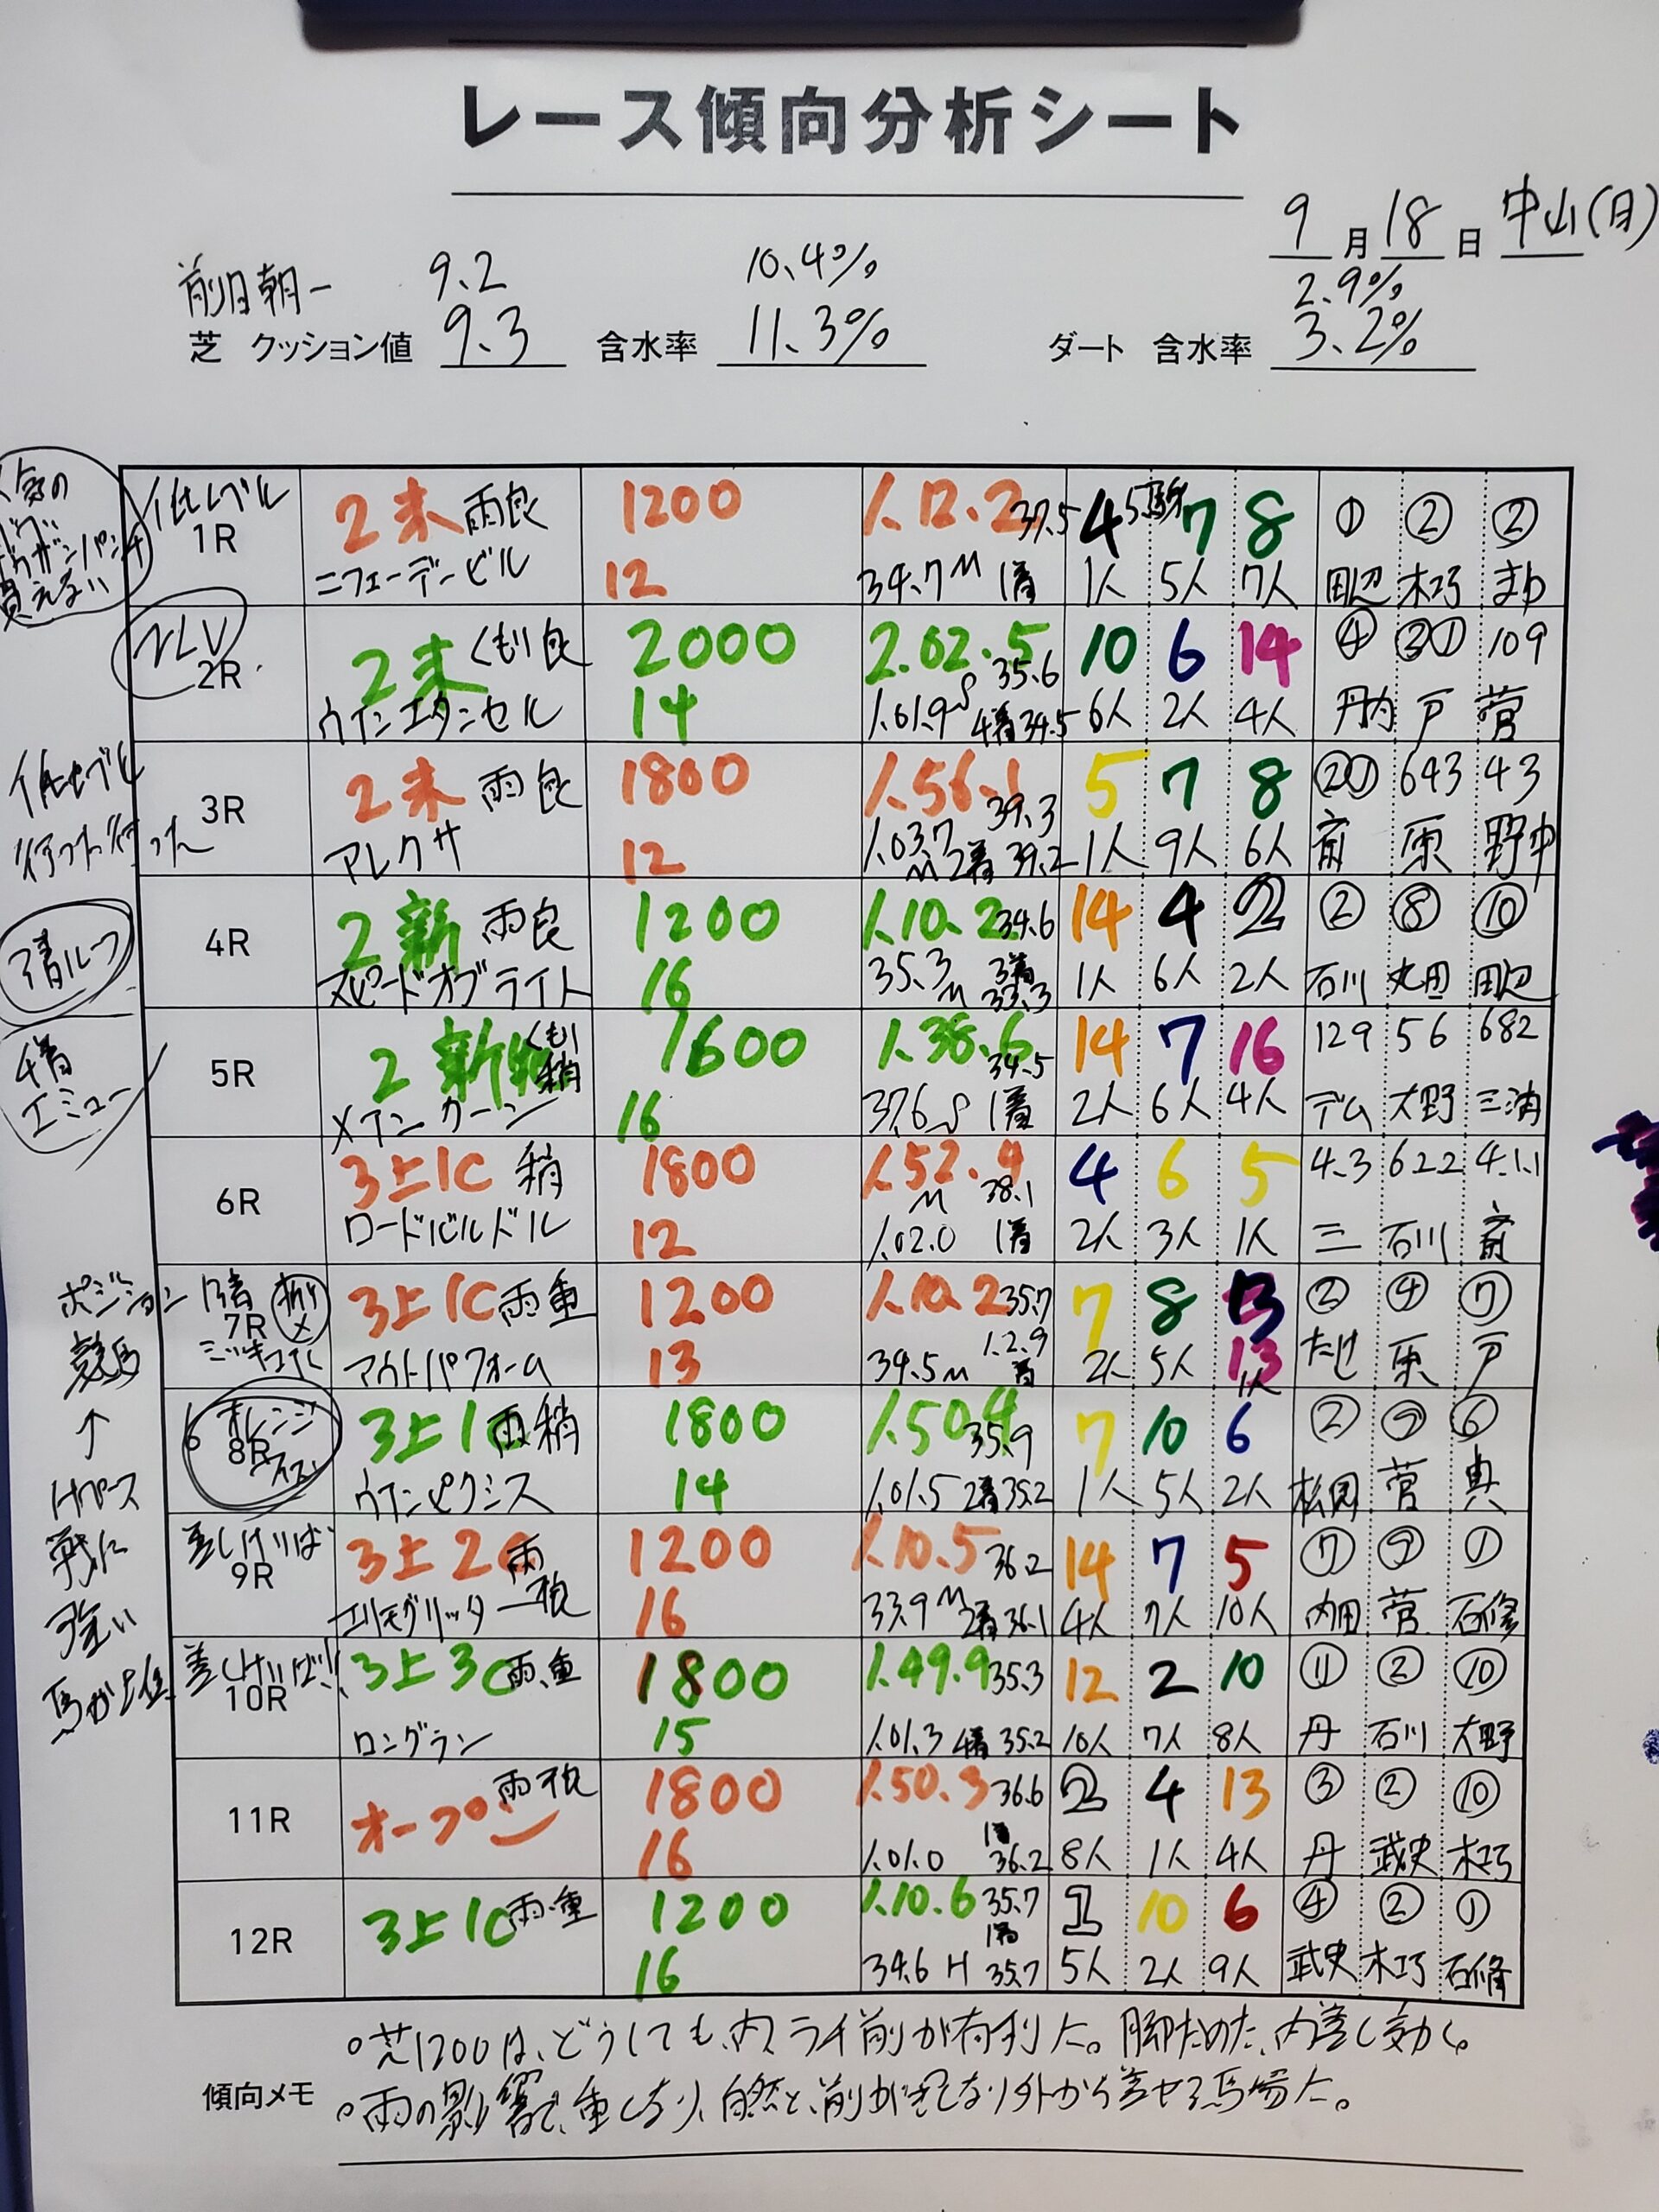 レース傾向分析シート
9月18日 中山(日)
前日朝一 9.2 10.4% 2.9%
芝 クッション値 9.3 含水率 11.3% ダート 含水率 3.2%
低レベル 2未 雨良 1200 1.12.2 37.5 4 7 8 ① ② ②
1R ニフェーデービル 12 34.7 M 1着 1人 5人 7人 田辺 木巧 まゆ
2未 くもり良 2000 2.02.5 35.6 10 6 14 ④ ③① 109
2R ウインエタンセル 14 1.01.9 S 4着 34.5 6人 2人 4人 丹内 戸 菅
低レベル
行った行った
2未 雨良 1800 1.56.1 39.3 5 7 8 ②① 643 43
3R アレクサ 12 1.03.7 M 2着 39.2 1人 9人 6人 斎 原 野中
2新 雨良 1200 1.10.2 34.6 14 4 2 ② ⑧ ⑩
4R スピードオブライト 16 35.3 M 3着 33.3 1人 6人 2人 石川 丸田 田辺
4着
エミュー
2新 くもり 稍 1600 1.38.6 34.5 14 7 16 129 56 682
5R メイン 16 37.6 S 1着 2人 6人 4人 デム 大野 三浦
3上1C 稍 1800 1.52.9 38.1 4 6 5 4.3 622 4.1.1
6R ロードバルドル 12 M 1.02.0 1着 2人 3人 1人 三 石川 斎
ポジション
競馬
↑
Hペース
戦に
強い
馬が上位
3上1C 雨重 1200 1.10.2 35.7 7 8 13 ② ④ ⑦
7R アウトパフォーム 13 34.5 M 1.2.9着 2人 5人 13 1人 たけ 原 戸
オレンジ 3上1C 雨稍 1800 1.50.4 35.9 7 10 6 ② ⑨ ⑥
8R ウインピクシス 14 1.01.5 2着 35.2 1人 5人 2人 松岡 菅 典
差しけいば 3上2C 雨 1200 1.10.5 36.2 14 7 5 ⑦ ⑨ ①
9R エリモグリッター 16 33.9 M 2着 36.1 4人 7人 10人 内田 菅 石修
差しけいば!! 3上3C 雨重 1800 1.49.9 35.3 12 2 10 ⑪ ② ⑩
10R ロングラン 15 1.01.3 4着 35.2 10人 7人 8人 丹 石川 大野
オープン 雨不良 1800 1.50.3 36.6 2 4 13 ③ ② ⑩
11R 16 1.01.0 1着 36.2 8人 1人 4人 丹 武史 木巧
3上1C 雨・重 1200 1.10.6 35.7 1 10 6 ④ ② ①
12R 16 34.6 H 1着 35.7 5人 2人 9人 武史 木巧 石修
。芝1200は、どうしても、内ライ前が有利だ。脚ためた、内差し効く。
傾向メモ 。雨の影響で、重くなり、自然と、前が苦しなり外から差せる馬場だ。